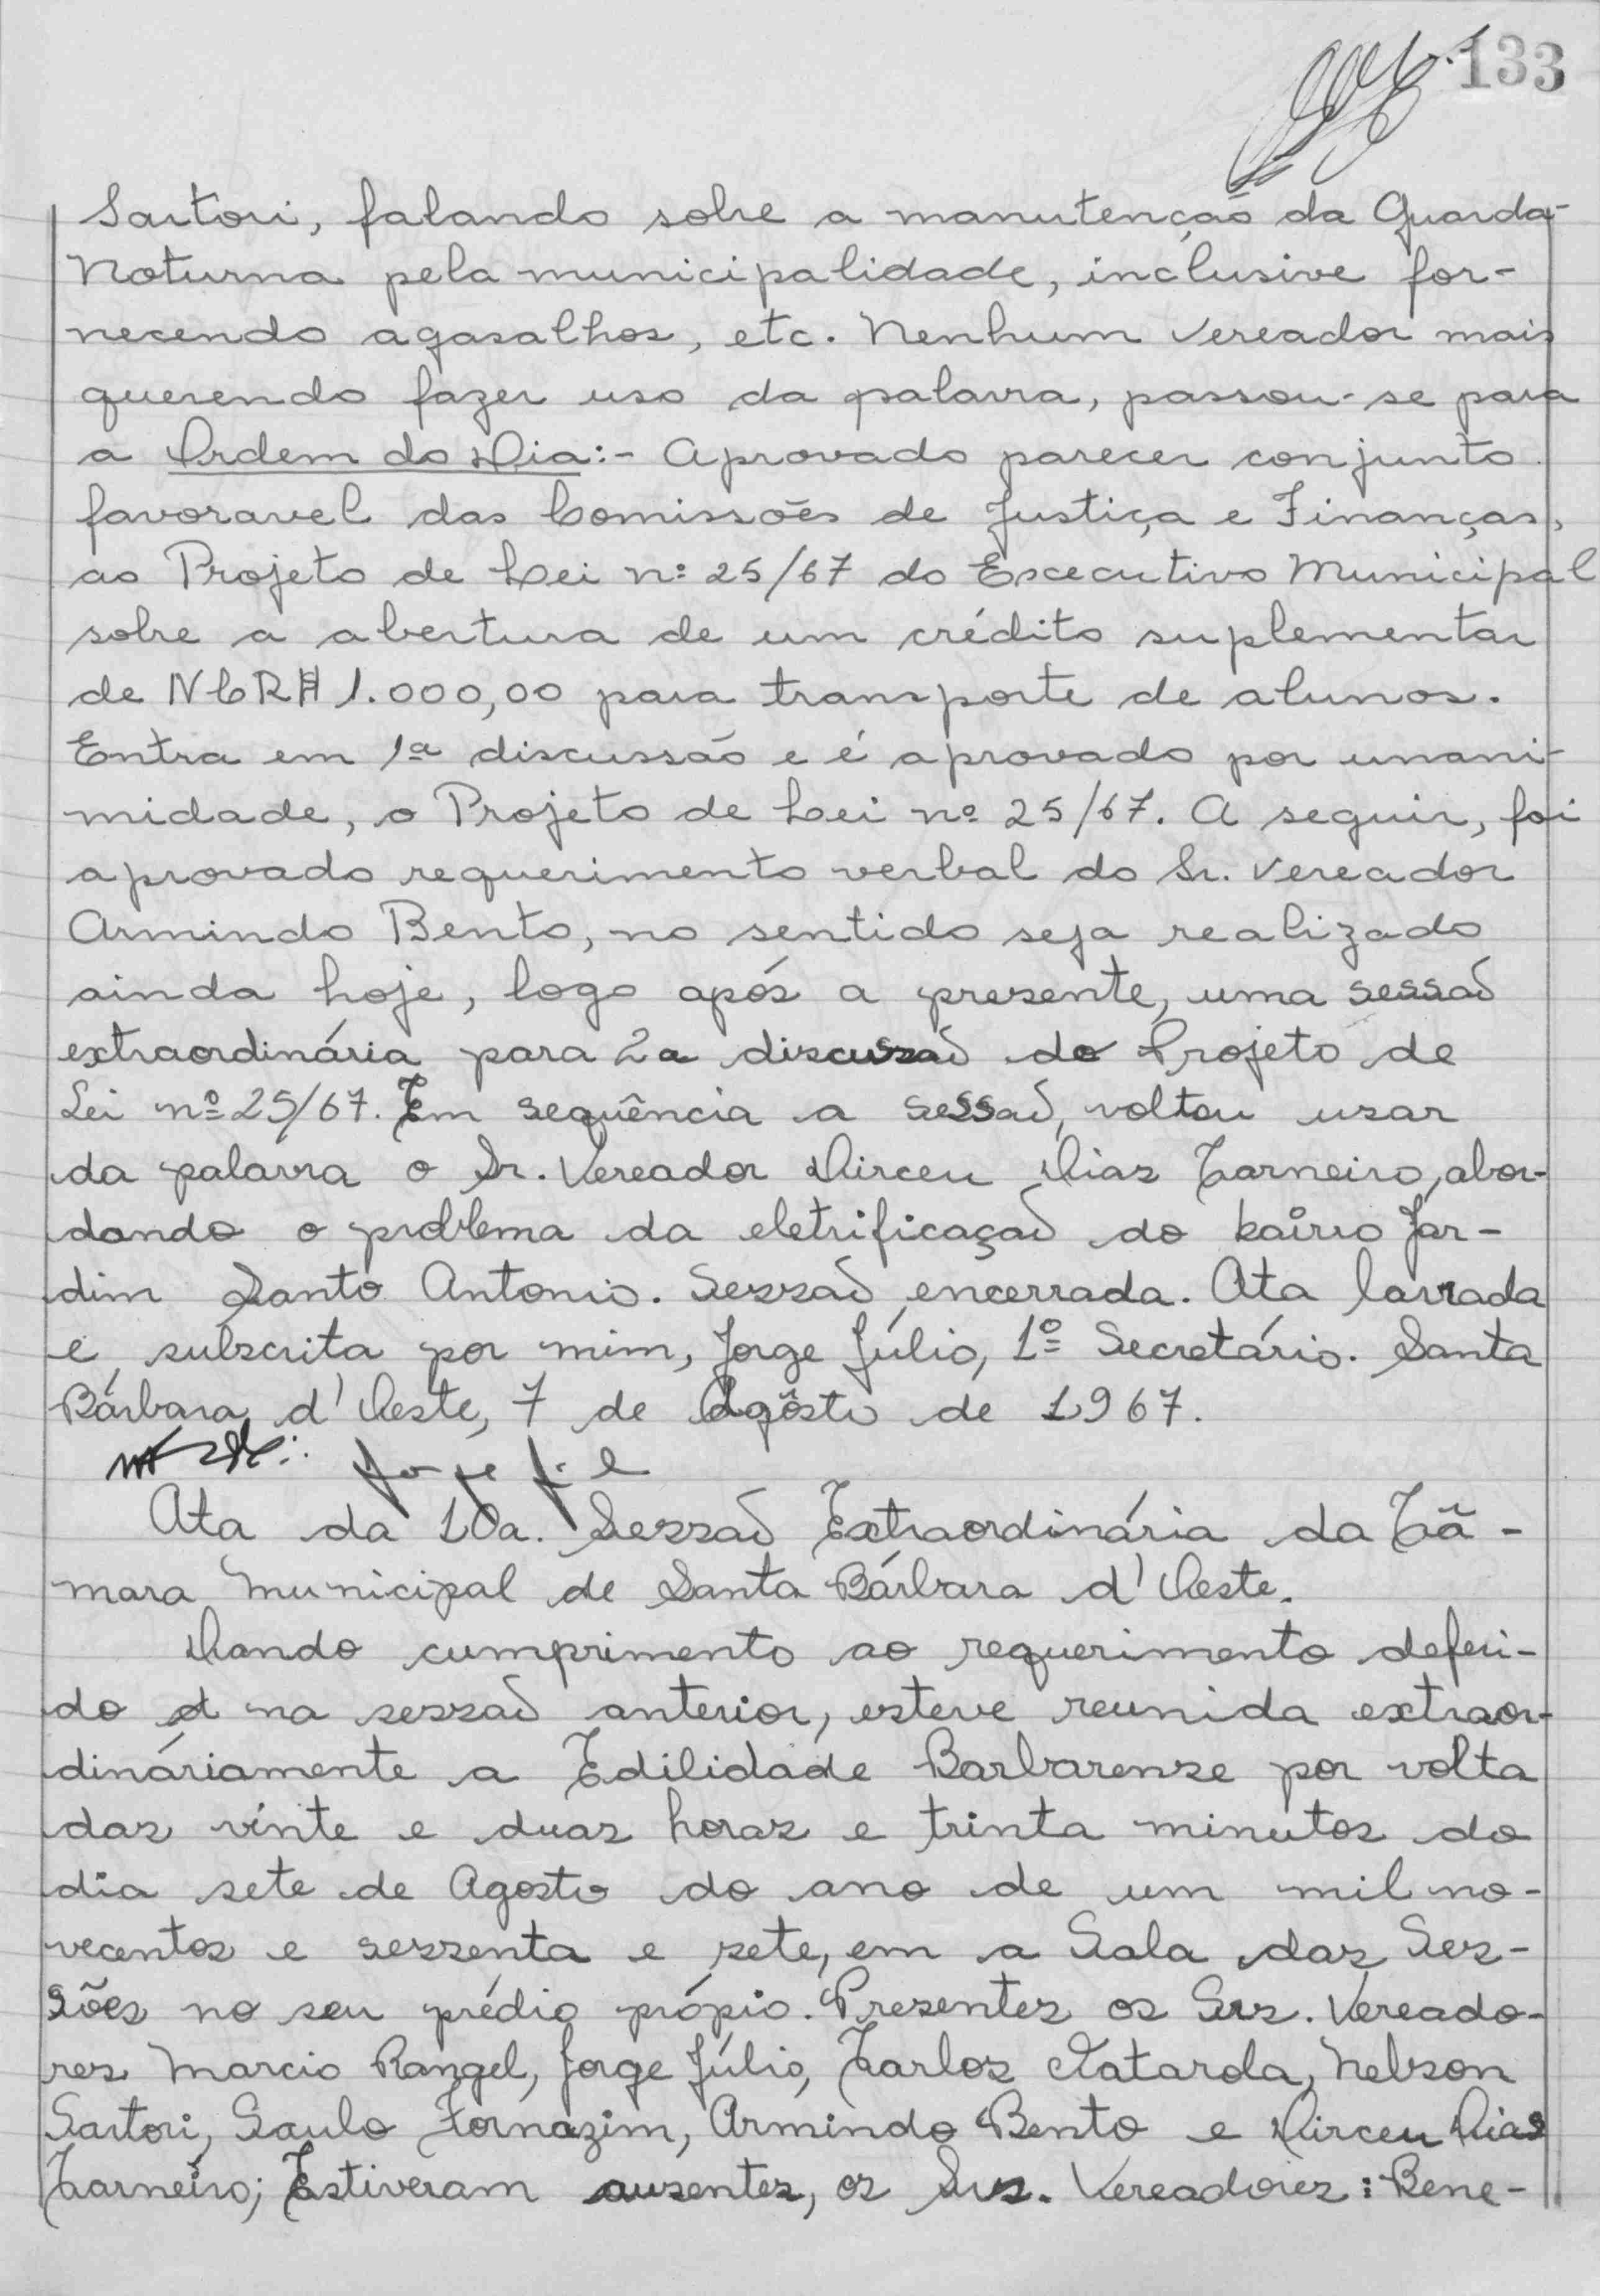 133
Sartori, falando sobre a manutenção da Guarda-
Noturna pela municipalidade, inclusive for-
necendo agasalhos, etc. Nenhum Vereador mais
querendo fazer uso da palavra, passou-se para
a Ordem do Dia:- Aprovado parecer conjunto
favoravel das Comissões de Justiça e Finanças,
ao Projeto de Lei nº 25/67 do Executivo Municipal
sobre a abertura de um crédito suplementar
de NCR$ 1.000,00 para transporte de alunos.
Entra em 1ª discussão e é aprovado por unani-
midade, o Projeto de Lei nº 25/67. A seguir, foi
aprovado requerimento verbal do Sr. Vereador
Armindo Bento, no sentido seja realizado
ainda hoje, logo após a presente, uma sessão
extraordinária para 2a discussão do Projeto de
Lei nº 25/67. Em sequência a sessão, voltou usar
da palavra o Sr. Vereador Dirceu Dias Carneiro, abor-
dando o problema da eletrificação do bairro Jar-
dim Santo Antonio. Sessão encerrada. Ata lavrada
e subscrita por mim, Jorge Júlio, 1º Secretário. Santa
Bárbara d'Oeste, 7 de Agôsto de 1967.
Ata da 10a. Sessão Extraordinária da Câ-
mara Municipal de Santa Bárbara d'Oeste.
Dando cumprimento ao requerimento deferi-
do na sessão anterior, esteve reunida extraor-
dináriamente a Edilidade Barbarense por volta
das vinte e duas horas e trinta minutos do
dia sete de Agosto do ano de um mil no-
vecentos e sessenta e sete, em a Sala das Ses-
sões no seu prédio própio. Presentes os Srs. Vereado-
res Marcio Rangel, Jorge Júlio, Carlos Catarda, Nelson
Sartori, Saulo Fornazim, Armindo Bento e Dirceu Dias
Carneiro; Estiveram ausentes, os Srs. Vereadores: Bene-